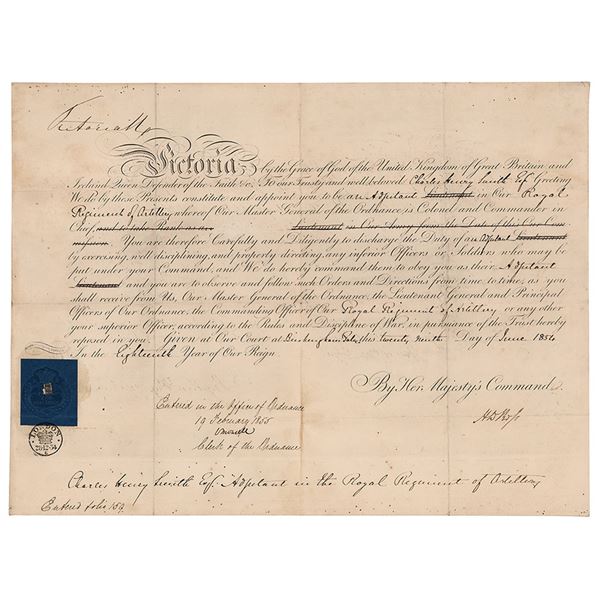 Victoria R
Victoria, by the Grace of God of the United Kingdom of Great Britain and
Ireland Queen Defender of the Faith &c. To our Trusty and well-beloved Charles Henry Smith Esq. Greeting
We do by these Presents constitute and appoint you to be an Adjutant Lieutenant in Our Royal
Regiment of Artillery whereof Our Master General of the Ordnance, is Colonel and Commander in
Chief, and to take Rank as a Lieutenant in Our Army from the Date of this Our Com-
mission. You are therefore Carefully and Diligently to discharge the Duty of an Adjutant Lieutenant
by exercising, well disciplining, and properly directing any inferior Officers or Soldiers who may be
put under your Command, and We do hereby command them to obey you as their Adjutant
Lieutenant and you are to observe and follow such Orders and Directions from time to time, as you
shall receive from Us, Our Master General of the Ordnance, the Lieutenant General and Principal
Officers of Our Ordnance, the Commanding Officer of Our Royal Regiment of Artillery or any other
your superior Officer, according to the Rules and Discipline of War, in pursuance of the Trust hereby
reposed in you. Given at Our Court at Buckingham Palace, this twenty ninth Day of June 1854
In the Eighteenth Year of Our Reign.
By Her Majesty's Command,
Entered in the Office of Ordnance
19 February 1855
Clerk of the Ordnance
LONDON
Charles Henry Smith Esq. Adjutant in the Royal Regiment of Artillery
Entered folio 159